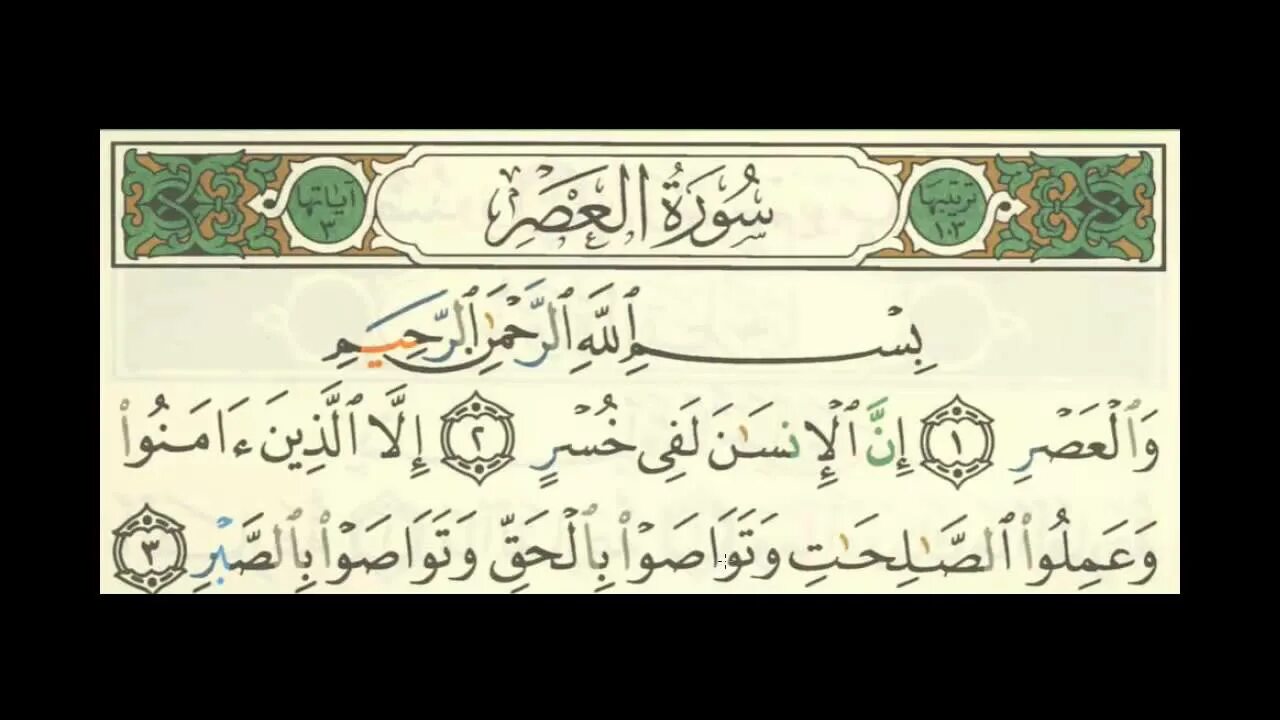 ترتيبها
١٠٣
سُورَةُ العَصْرِ
آياتها
٣
بِسْمِ ٱللَّهِ ٱلرَّحْمَٰنِ ٱلرَّحِيمِ
وَٱلْعَصْرِ ١ إِنَّ ٱلْإِنسَٰنَ لَفِى خُسْرٍ ٢ إِلَّا ٱلَّذِينَ ءَامَنُوا۟
وَعَمِلُوا۟ ٱلصَّٰلِحَٰتِ وَتَوَاصَوْا۟ بِٱلْحَقِّ وَتَوَاصَوْا۟ بِٱلصَّبْرِ ٣